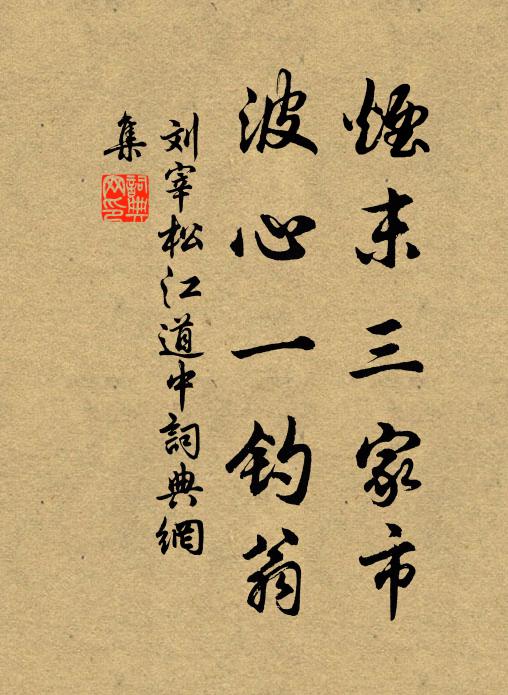 煙末三家市
波心一钓翁
刘宰松江道中詞典網
集
詞典網印